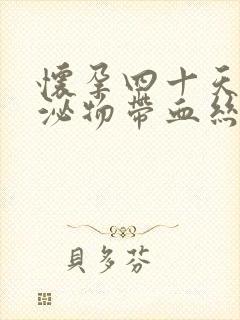 懷孕四十天
泌物帶血絲
貝多芬